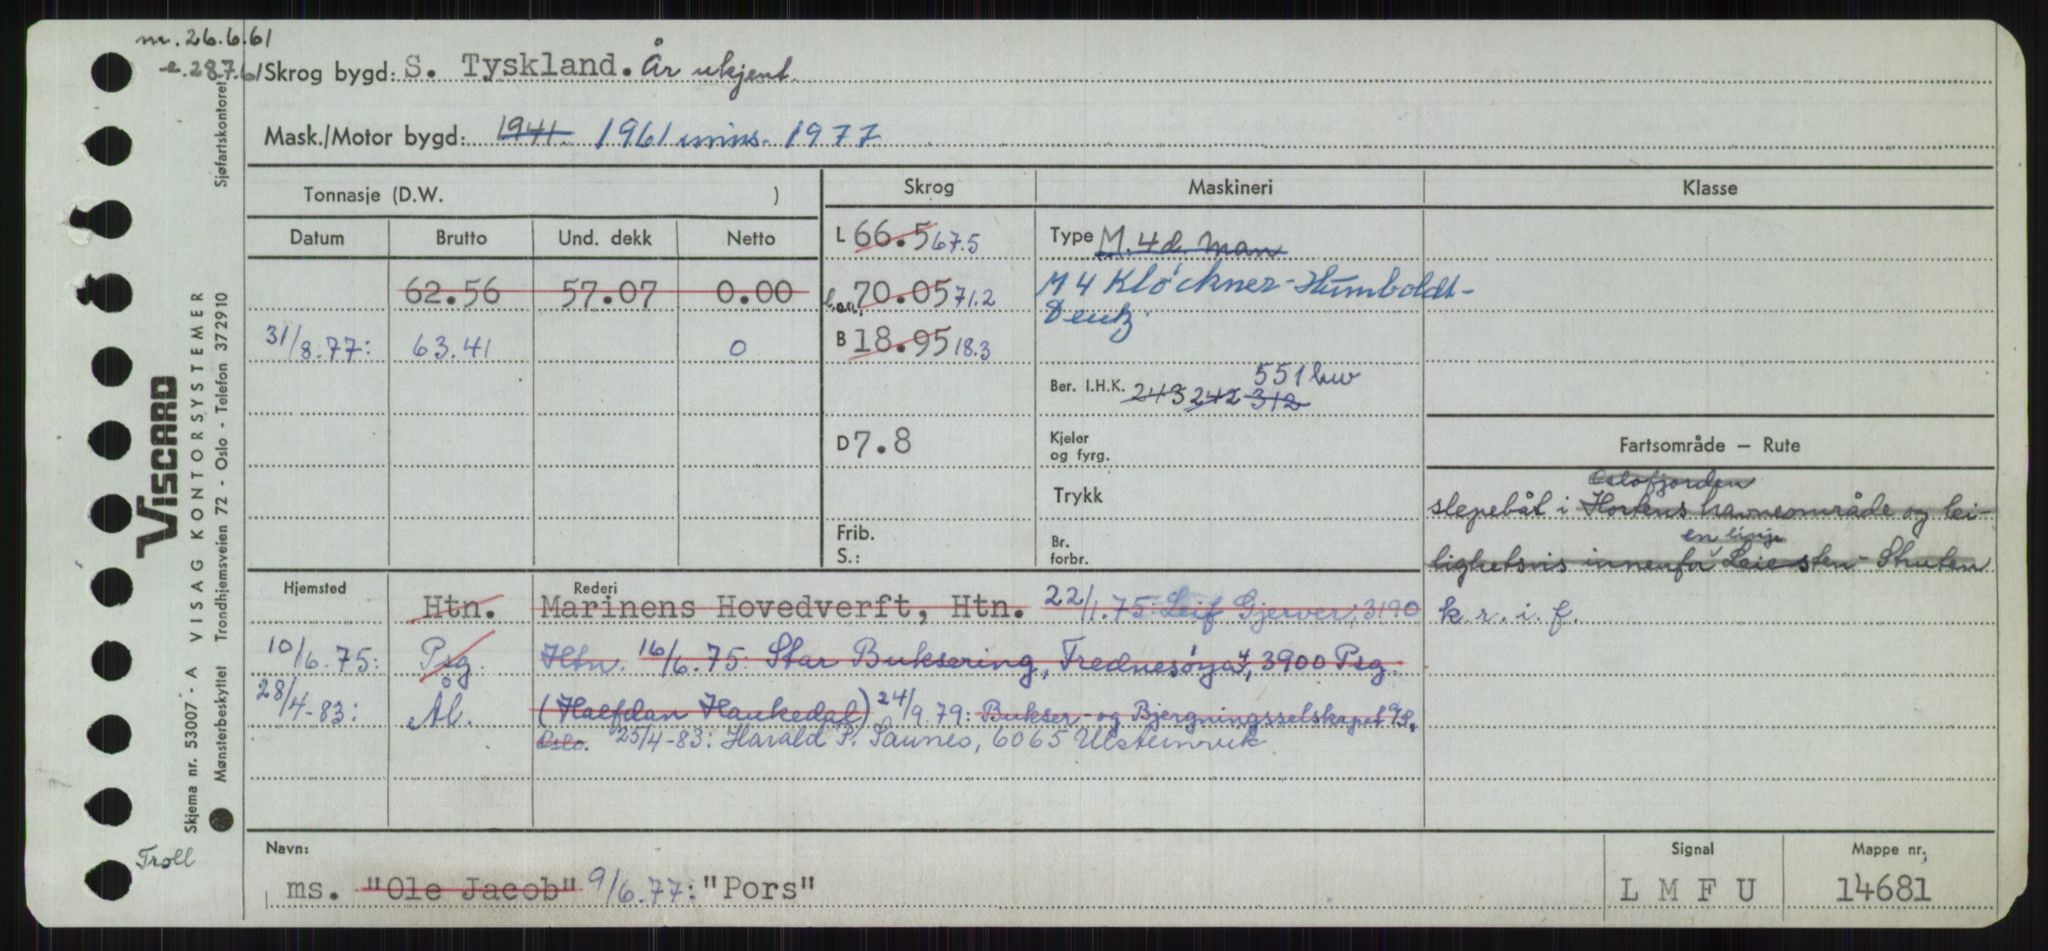 m. 26.6.61
e. 28.7.61 Skrog bygd: S. Tyskland. År ukjent.
Mask./Motor bygd: 1941. 1961 mins. 1977
Tonnasje (D.W. )
Skrog
Maskineri
Klasse
Datum Brutto Und. dekk Netto
L 66.5 67.5
Type M.4d. Man
62.56 57.07 0.00
70.05 71.2
M 4 Klöckner-Humboldt-
Deutz.
31/8.77: 63.41 0
B 18.95 18.3
Ber. I.H.K. 243 242 312 551 kw
D 7.8
Kjeler
og fyrg.
Trykk
Frib.
S.:
Br.
forbr.
Fartsområde — Rute
Oslofjorden
slepebåt i Hortens havneområde og lei-
en linje
lighetsvis innenfor Leiesten - Struten
k.r.i.f.
Hjemsted Rederi
Htn. Marinens Hovedverft, Htn. 22/1.75: Leif Gjerver, 3190
10/6.75: Psg. Htn. 16/6.75: Star Buksering, Frednesøya 7, 3900 Psg.
28/4-83: Ål. (Halfdan Haukedal) 24/9.79: Bukser- og Bjergningsselskapet
Oslo. 25/4-83: Harald P. Saunes, 6065 Ulsteinvik
Navn: Signal Mappe nr.
ms. "Ole Jacob" 9/6.77: "Pors" L M F U 14681
Troll
VISCARD
Skjema nr. 53007 - A VISAG KONTORSYSTEMER Sjøfartskontoret
Mønsterbeskyttet Trondhjemsveien 72 - Oslo - Telefon 372910